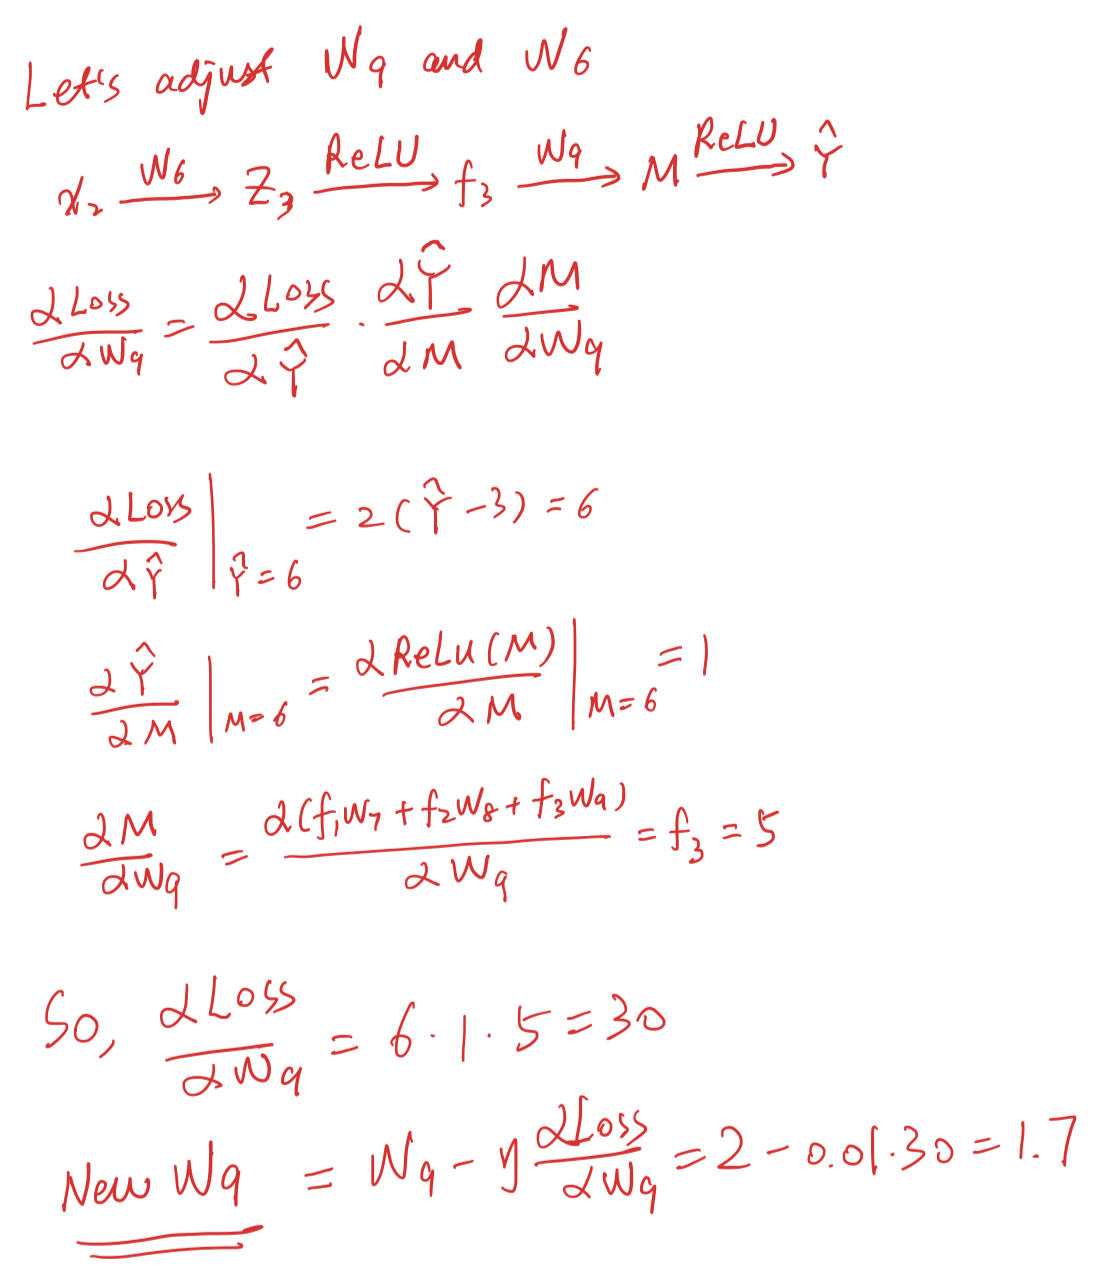 Let's adjust W₉ and W₆
x₂ —W₆→ Z₃ —ReLU→ f₃ —W₉→ M —ReLU→ Ŷ
∂Loss/∂W₉ = ∂Loss/∂Ŷ · ∂Ŷ/∂M ∂M/∂W₉
∂Loss/∂Ŷ |Ŷ=6 = 2(Ŷ-3) = 6
∂Ŷ/∂M |M=6 = ∂ReLu(M)/∂M |M=6 = 1
∂M/∂W₉ = ∂(f₁W₇+f₂W₈+f₃W₉)/∂W₉ = f₃ = 5
So, ∂Loss/∂W₉ = 6·1·5=30
New W₉ = W₉ - η ∂Loss/∂W₉ = 2 - 0.01·30 = 1.7